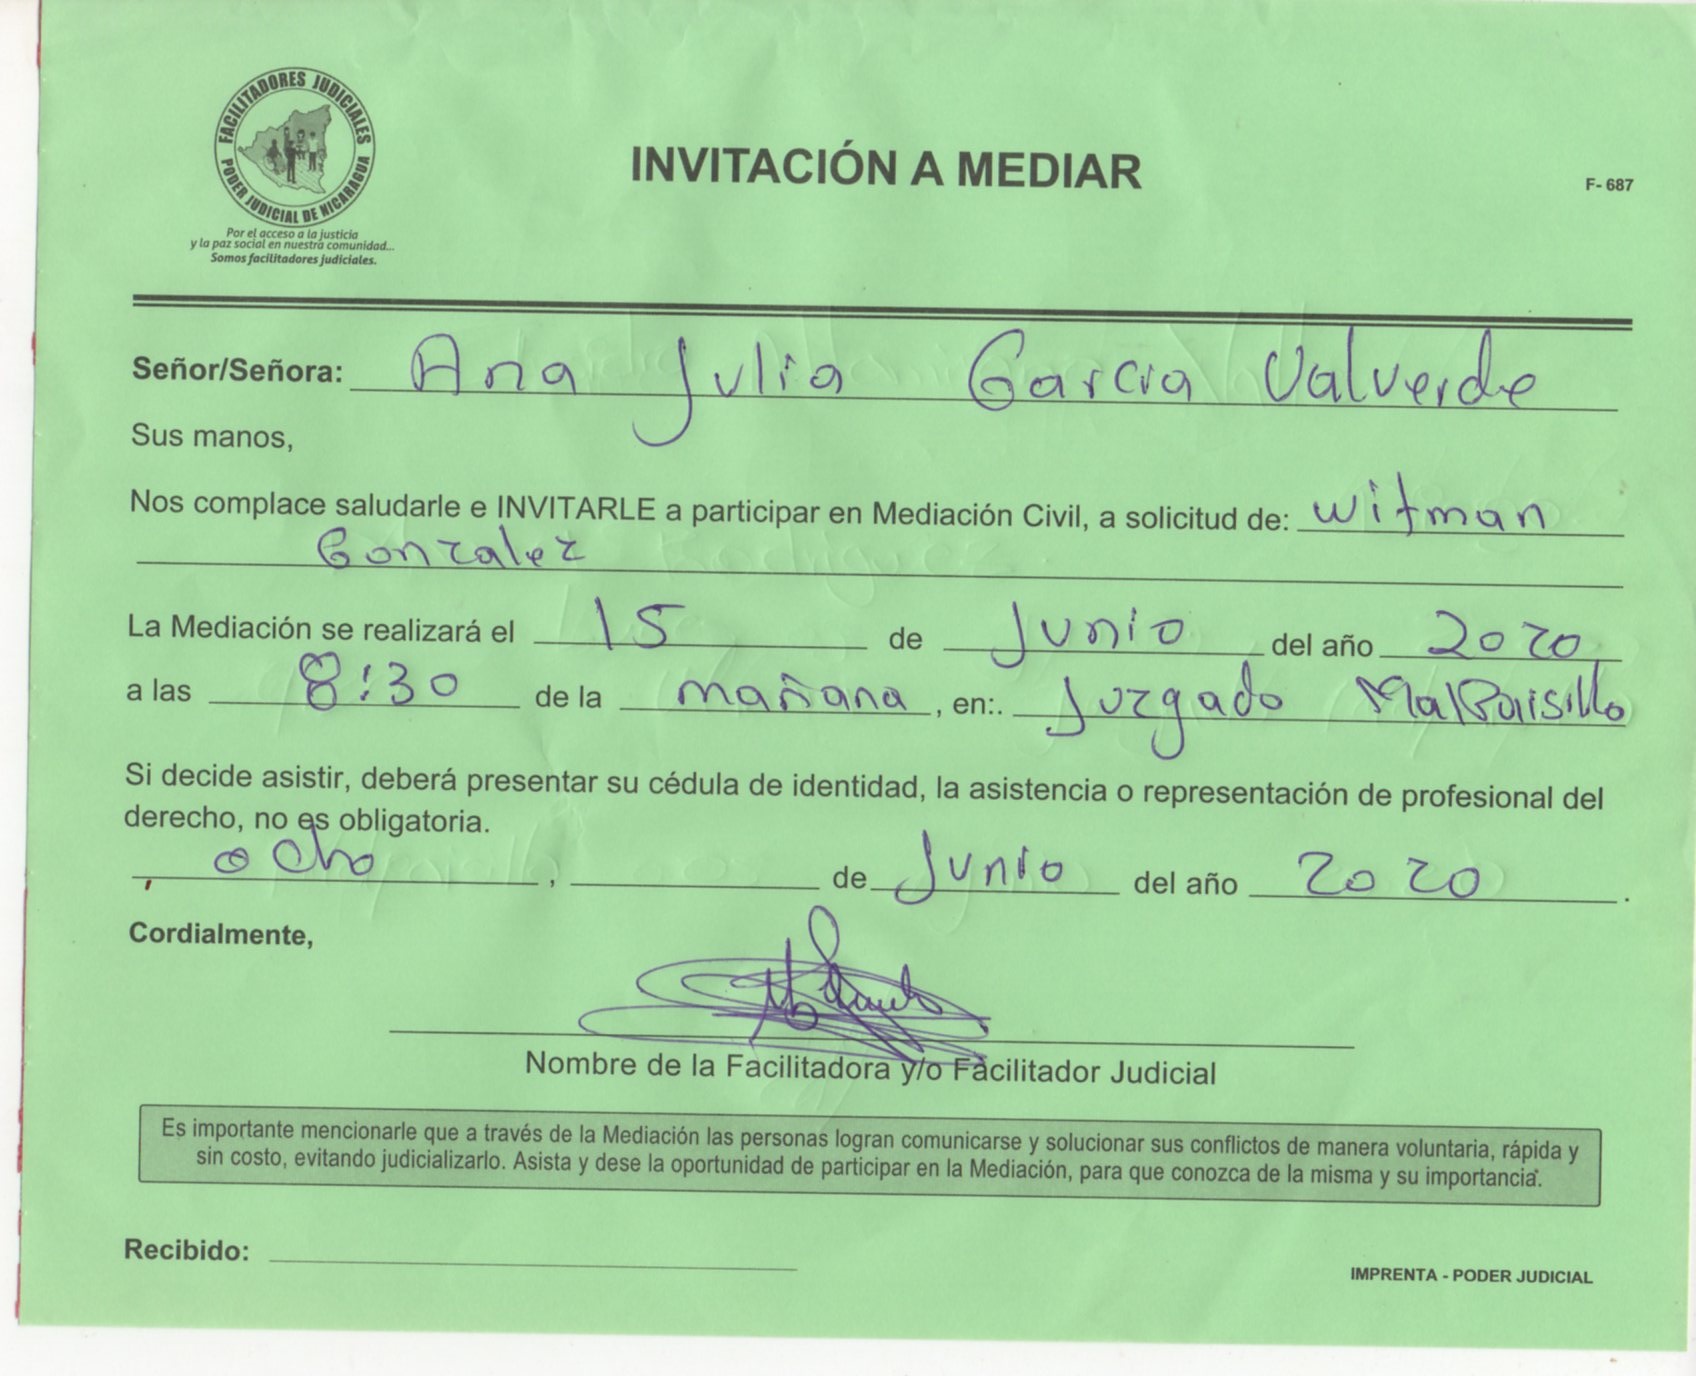 FACILITADORES JUDICIALES
PODER JUDICIAL DE NICARAGUA
Por el acceso a la justicia
y la paz social en nuestra comunidad...
Somos facilitadores judiciales.
INVITACIÓN A MEDIAR
F- 687
Señor/Señora: Ana Julia Garcia Valverde
Sus manos,
Nos complace saludarle e INVITARLE a participar en Mediación Civil, a solicitud de: witman
Gonzalez
La Mediación se realizará el 15 de Junio del año 2020
a las 8:30 de la mañana, en:. Juzgado Malpaisillo
Si decide asistir, deberá presentar su cédula de identidad, la asistencia o representación de profesional del
derecho, no es obligatoria.
ocho, de Junio del año 2020.
Cordialmente,
Nombre de la Facilitadora y/o Facilitador Judicial
Es importante mencionarle que a través de la Mediación las personas logran comunicarse y solucionar sus conflictos de manera voluntaria, rápida y
sin costo, evitando judicializarlo. Asista y dese la oportunidad de participar en la Mediación, para que conozca de la misma y su importancia.
Recibido:
IMPRENTA - PODER JUDICIAL